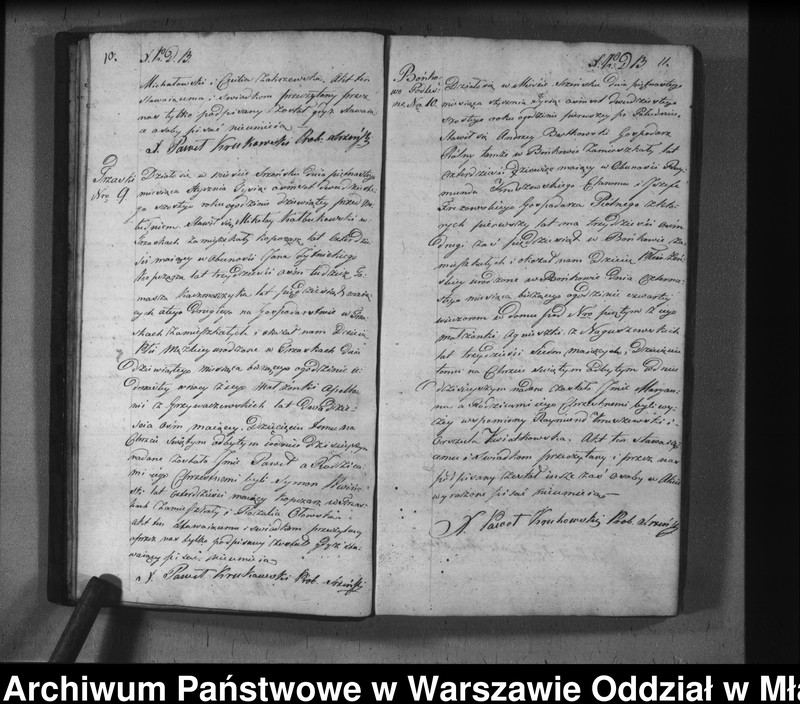 10.
Michałowski i Cecilia Zakrzewska. Akt ten
Stawaiącemu i Swiadkom przeczytany przez
nas tylko podpisany został gdyż Stawaią
a osoby pisać nieumieią
X. Paweł Krukowski Prob.
Nro 9
Działo się w mieście dnia piętnastego
miesiąca Stycznia Tysiąc osmset dwudzieste
go szostego roku ogodzinie dziewiątey przed po
łudniem. Stawił się Mikołay w
zamieszkały kopczarz lat czterdzie
ści maiący w Obecności Jana
kopczarza lat trzydzieści osm tudzież To
masza Kaczmarczyka lat pięćdziesiąt maią
cych obego Drugiego na Gospodarstwie w
zamieszkałych i okazał nam Dziecię
Płci Męzkiey urodzone w Dnia
dziewiątego miesiąca bieżącego ogodzinie
w nocy z iego Małżonki Apollo
nii z lat Dwadzie
scia osm maiącey, Dziecięciu temu na
Chrzcie Swiętym odbytym w dniu Dzisieyszym
nadane zostało Imie Paweł a Rodzica
mi iego Chrzestnemi byli Symon
lat czterdzieści maiący kopczarz
zamieszkały i Rozalia
akt ten Stawaiącemu i swiadkom przeczytany
a przez nas tylko podpisany został Gdyż sta
waiący pisać nieumieią
X. Paweł Krukowski Prob.
11.
Bońko-
wo Podleś-
ne Nro 10.
Działo się w Mieście dnia piętnastego
miesiąca stycznia tysiąc osmset dwudziestego
szostego roku ogodzinie pierwszy po Południu.
Stawił się Andrzey Gospodarz
Rolny tamże w Bońkowie Zamieszkały lat
czterdzieści dziewięć maiący w Obecności Ray-
munda Kruszewskiego i Jozefa
Gospodarza Rolnego
pierwszy lat ma trzydzieści osm
drugi zaś pięćdziesiąt w Bońkowie za
mieszkałych i okazał nam Dziecię Płci Żeń
skiey urodzone w Bońkowie Dnia Czterna
stego miesiąca bieżącego ogodzinie czwartey
wieczorem w domu pod Nro piętym z iego
małżonki Agnieszki z Naguszewskich
lat trzydzieści siedm maiącey, Dziecięciu
temu na Chrzcie Swiętym odbytym w dniu
dzisieyszym nadane zostało Imie Maryan-
na a Rodzicami iego Chrzestnemi byli wy-
żey wspomniony Raymund Kruszewski i
Kwiatkowska. Akt ten stawaią
cemu i Swiadkom przeczytany i przez nas
podpisany został insze zaś osoby w Akcie
wyrażone pisać nieumieią
X. Paweł Krukowski Prob.
Archiwum Państwowe w Warszawie Oddział w Mła